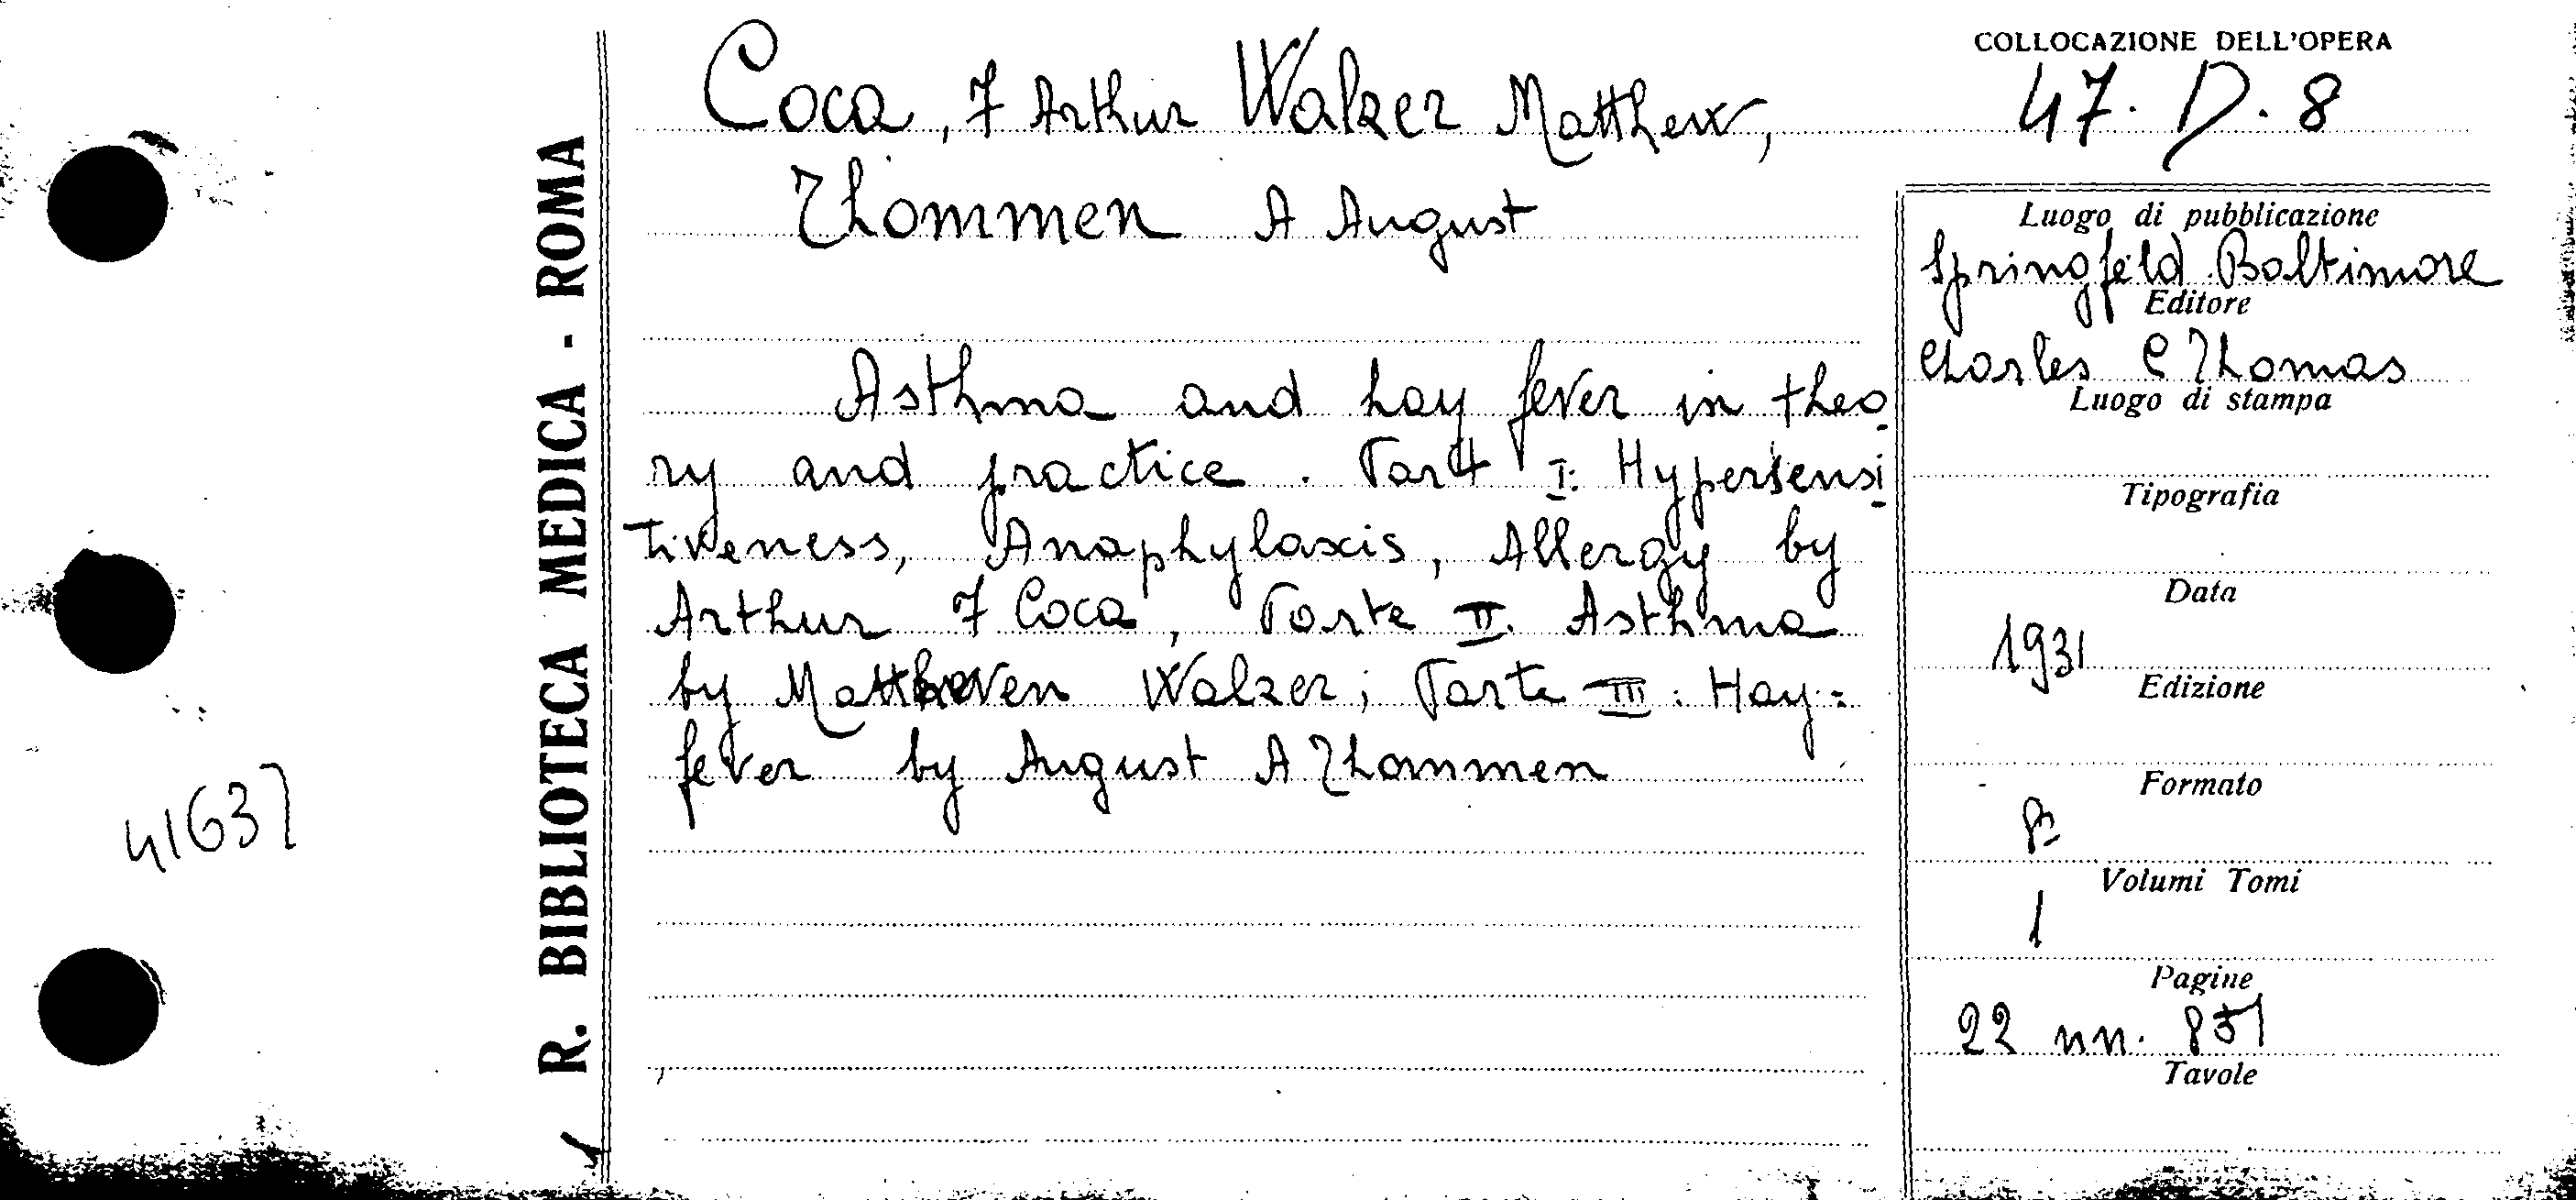 COLLOCAZIONE DELL'OPERA
47. D. 8
Coca, F Arthur Walzer Matthew,
Thommen A August
Asthma and hay fever in theo
ry and practice. Part I: Hypersensi
tiveness, Anaphylaxis, Allergy by
Arthur F Coca, Parte II. Asthma
by Walzer; Parte III: Hay=
fever by August A Thommen
Luogo di pubblicazione
Springfeld Baltimore
Editore
Charles C Thomas
Luogo di stampa
Tipografia
Data
1931
Edizione
Formato
8
Volumi Tomi
1
Pagine
22 nn. 851
Tavole
R. BIBLIOTECA MEDICA - ROMA
41637